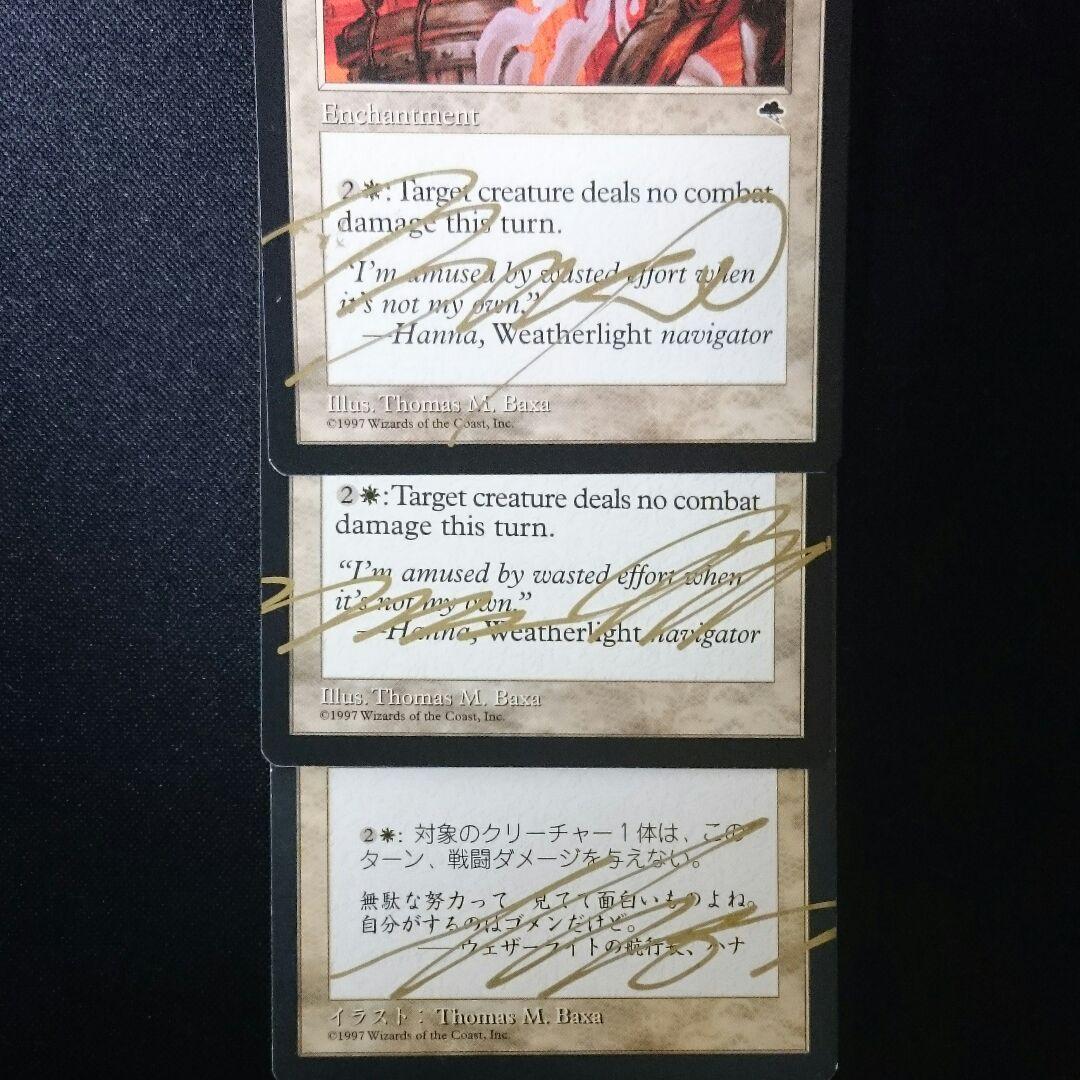 Enchantment
2 : Target creature deals no combat
damage this turn.
"I'm amused by wasted effort when
it's not my own."
—Hanna, Weatherlight navigator
Illus. Thomas M. Baxa
©1997 Wizards of the Coast, Inc.
2 : Target creature deals no combat
damage this turn.
"I'm amused by wasted effort when
it's not my own."
—Hanna, Weatherlight navigator
Illus. Thomas M. Baxa
©1997 Wizards of the Coast, Inc.
2 : 対象のクリーチャー1体は、この
ターン、戦闘ダメージを与えない。
無駄な努力って、見てて面白いものよね。
自分がするのはゴメンだけど。
── ウェザーライトの航行長、ハナ
イラスト: Thomas M. Baxa
©1997 Wizards of the Coast, Inc.